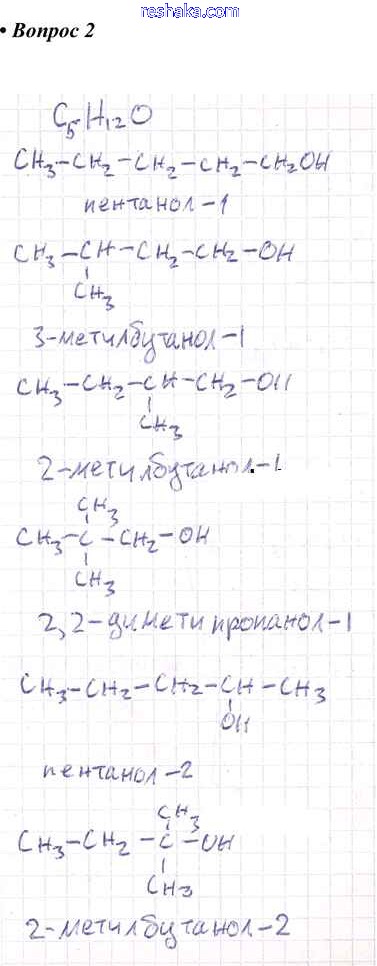 reshaka.com
• Вопрос 2
C₅H₁₂O
CH₃-CH₂-CH₂-CH₂-CH₂OH
пентанол-1
CH₃-CH-CH₂-CH₂-OH
CH₃
3-метилбутанол-1
CH₃-CH₂-CH-CH₂-OH
CH₃
2-метилбутанол-1
CH₃
CH₃-C-CH₂-OH
CH₃
2,2-димети пропанол-1
CH₃-CH₂-CH₂-CH-CH₃
OH
пентанол-2
CH₃
CH₃-CH₂-C-OH
CH₃
2-метилбутанол-2